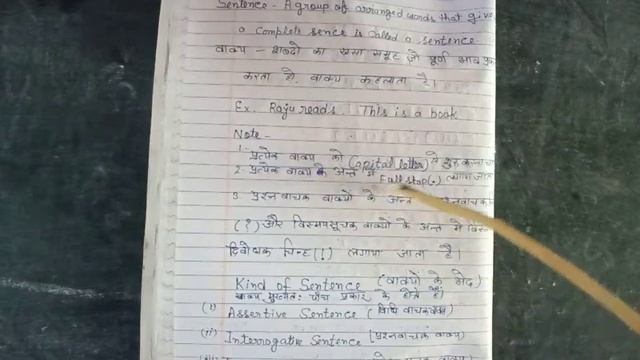 Sentence - A group of arranged words that give
a complete sence is called a sentence.
वाक्य - शब्दो का ऐसा समूह जो पूर्ण भाव
करता हो, वाक्य कहलाता है।
Ex. Raju reads. This is a book
Note -
1- प्रत्येक वाक्य को (Capital letter) से शुरू करना
2- प्रत्येक वाक्य के अन्त में Full stop(.) लगाया जाता
3. प्रश्नवाचक वाक्यों के अन्त
(?) और विस्मयसूचक वाक्यों के अन्त में
दिबोधक चिन्ह (!) लगाया जाता है।
Kind of Sentence (वाक्यों के भेद)
वाक्य मुख्यतः पाँच प्रकार के होते हैं
(i) Assertive Sentence (विधि वाचक वाक्य)
(ii) Interrogative Sentence (प्रश्नवाचक वाक्य)